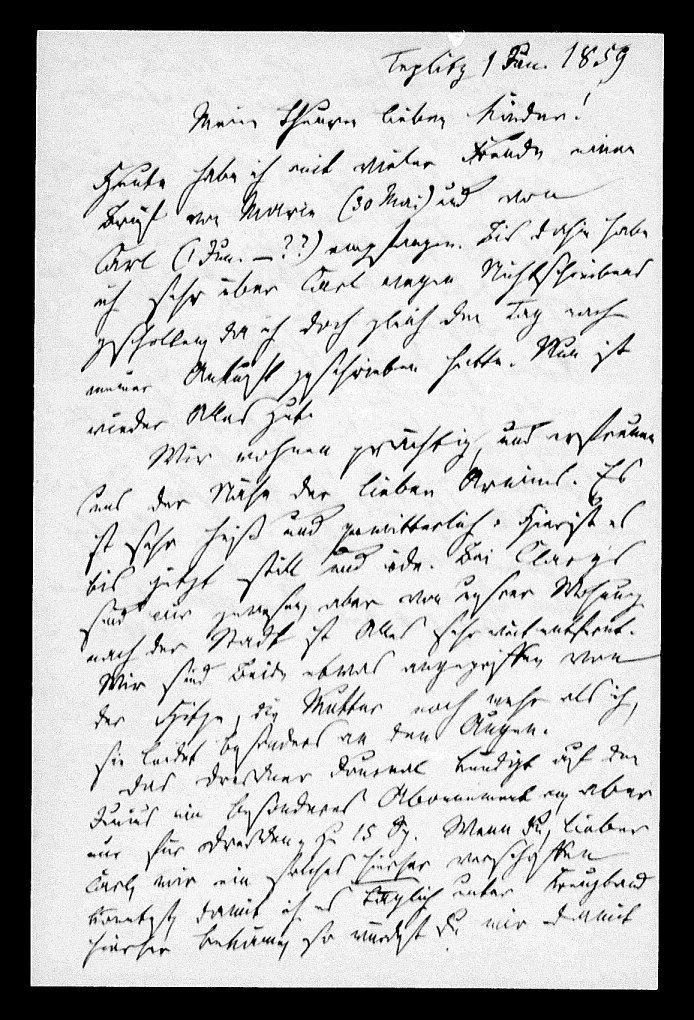 Teplitz 1 Jun. 1859
Meine theuren lieben Kinder!
Heute habe ich mit vieler Freude einen
Brief von Marie (30 Mai) und von
Carl (1 Jun. – ??) empfangen. Bis dahin habe
ich sehr über Carl wegen Nichtschreibens
gescholten, da ich doch gleich den Tag nach
meiner Ankunft geschrieben hatte. Nun ist
wieder Alles gut.
Wir wohnen prächtig, und erfreuen
uns der Nähe der lieben Arnims. Es
ist sehr heiß und gewitterlich. Hier ist es
bis jetzt still und öde. Bei Clary's
sind wir gewesen, aber von unsrer Wohnung
nach der Stadt ist Alles sehr weit entfernt.
Wir sind Beide etwas angegriffen von
der Hitze, die Mutter noch mehr als ich,
sie leidet besonders an den Augen.
Das Dresdner Journal kündigt auf den
Junius ein besonderes Abonnement an, aber
nur für Dresden, zu 15 Wenn Du, lieber
Carl, mir ein solches hierher verschaffen
könntest, damit ich es täglich unter Kreuzband
hierher bekäme, so würdest Du mir damit